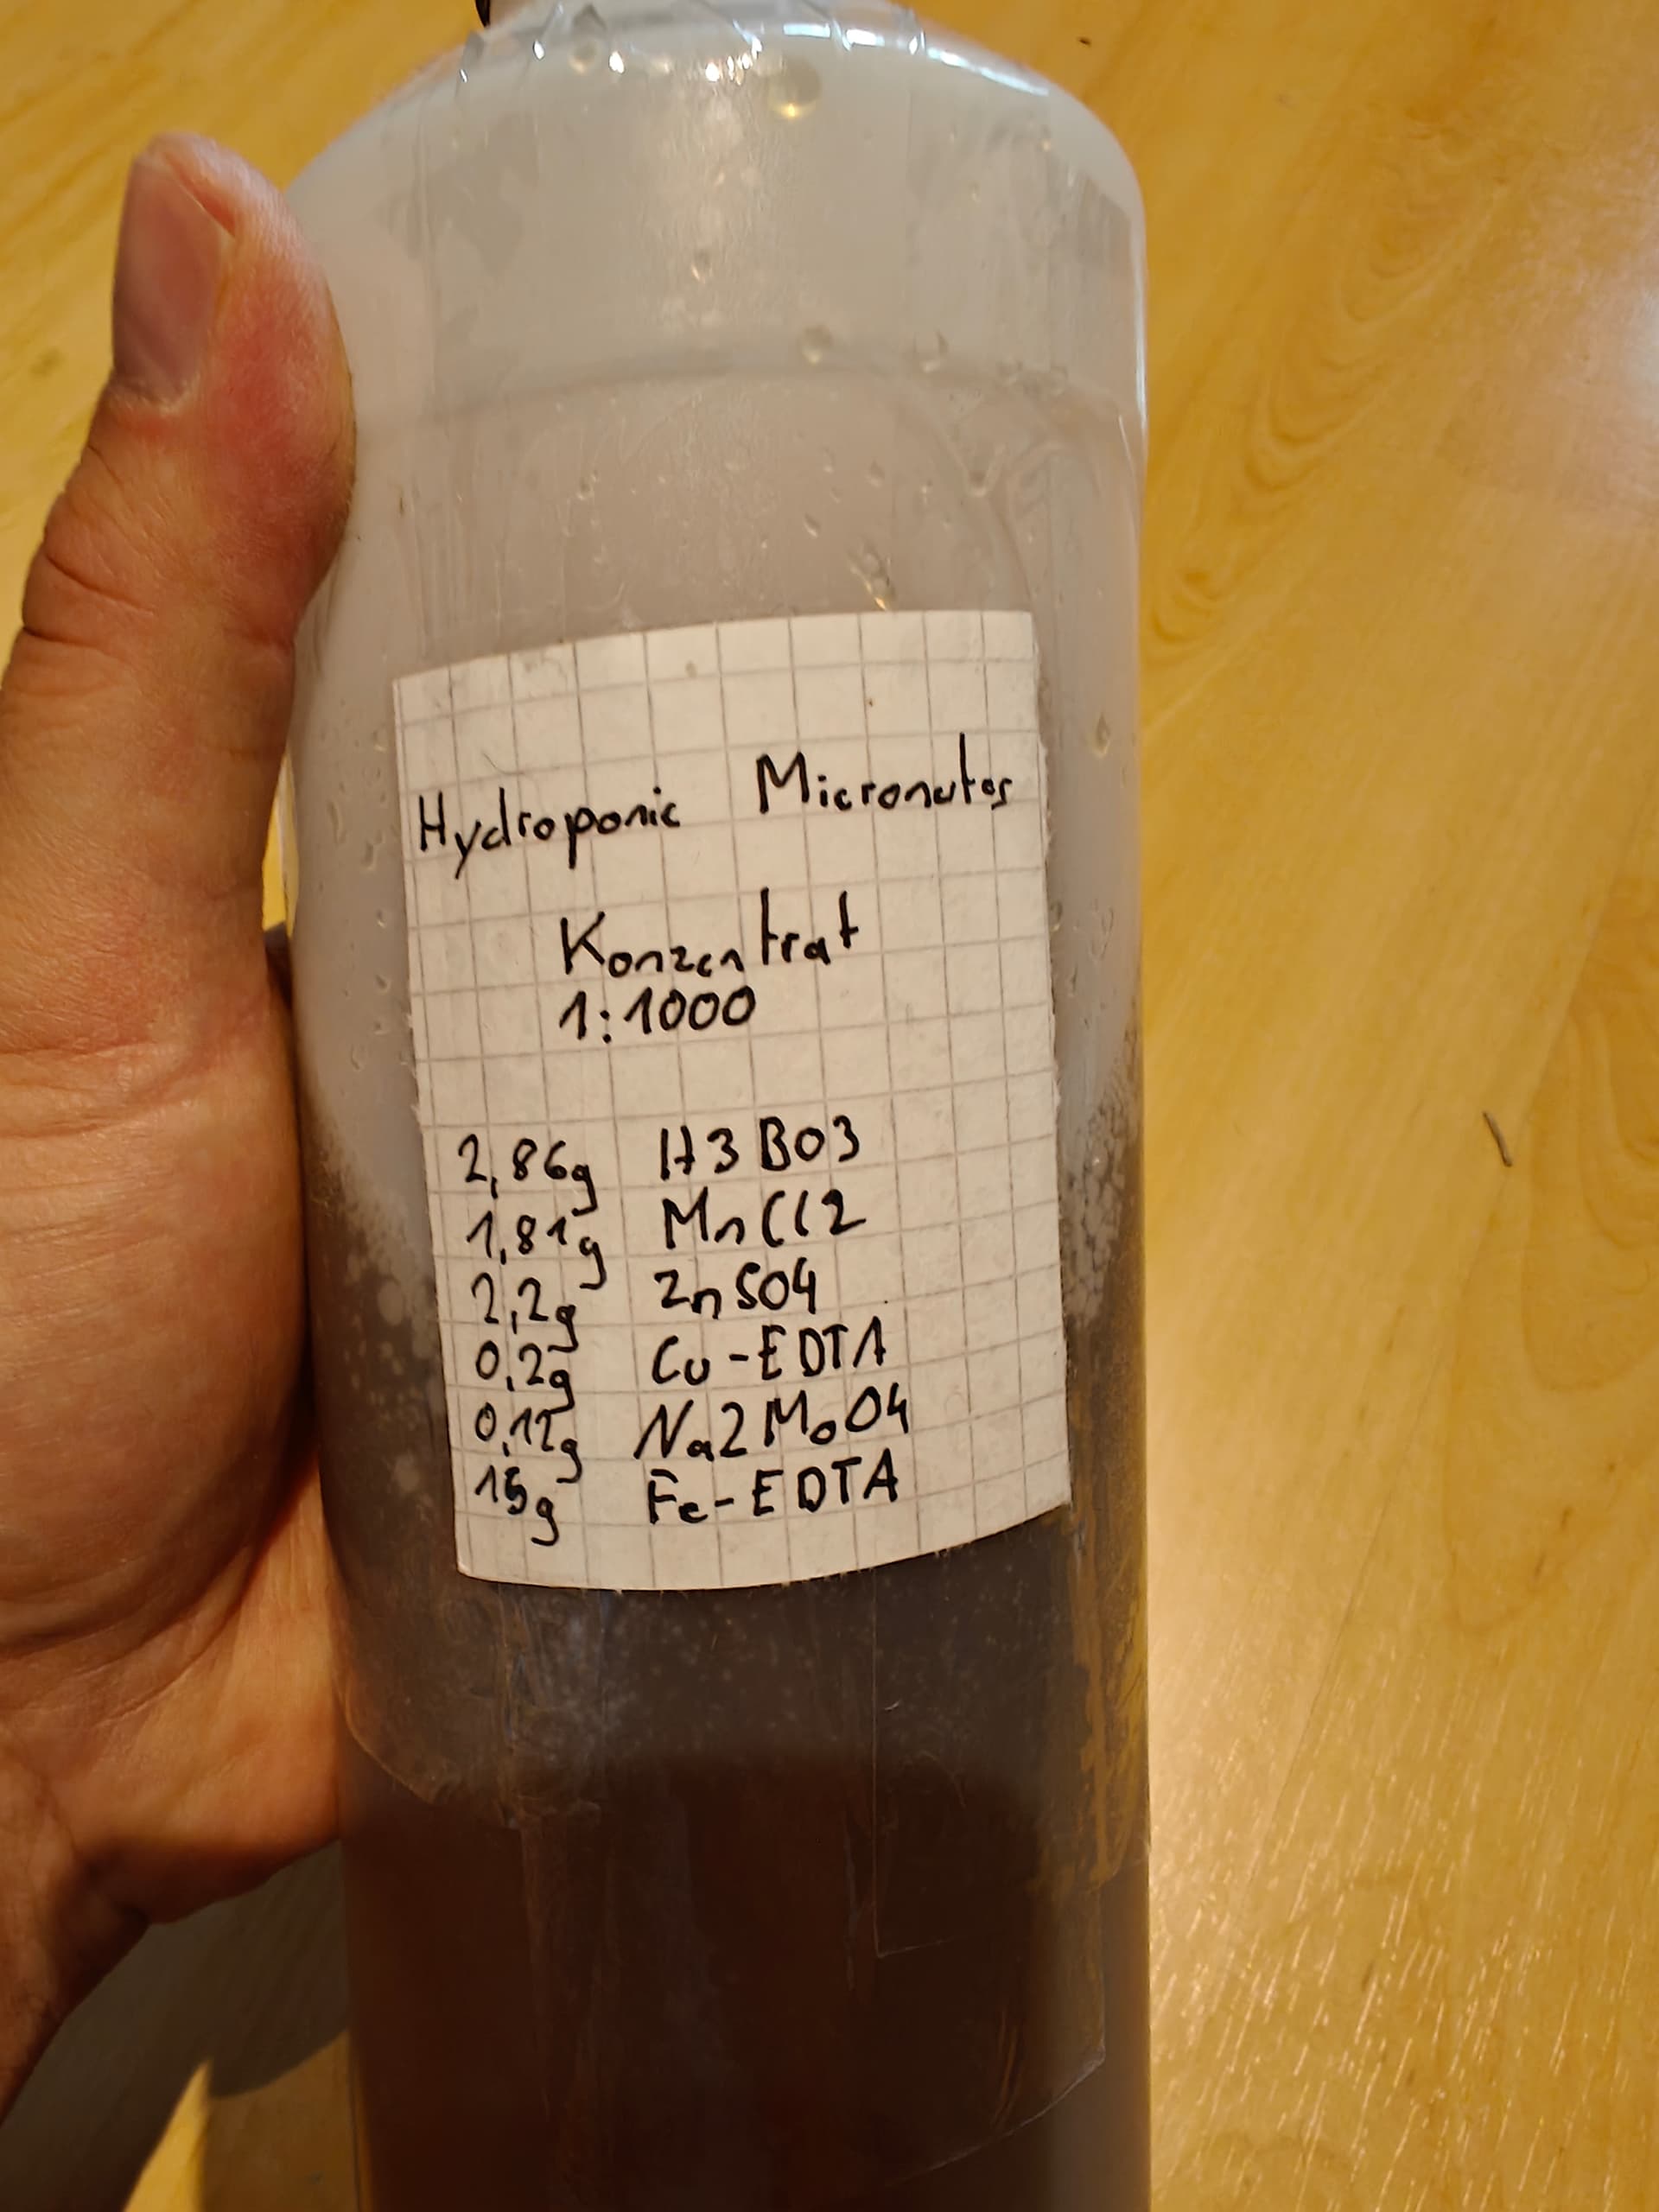 Hydroponic Micronutes
Konzentrat
1:1000
2,86g H3BO3
1,81g MnCl2
2,2g ZnSO4
0,2g Cu-EDTA
0,12g Na2MoO4
15g Fe-EDTA